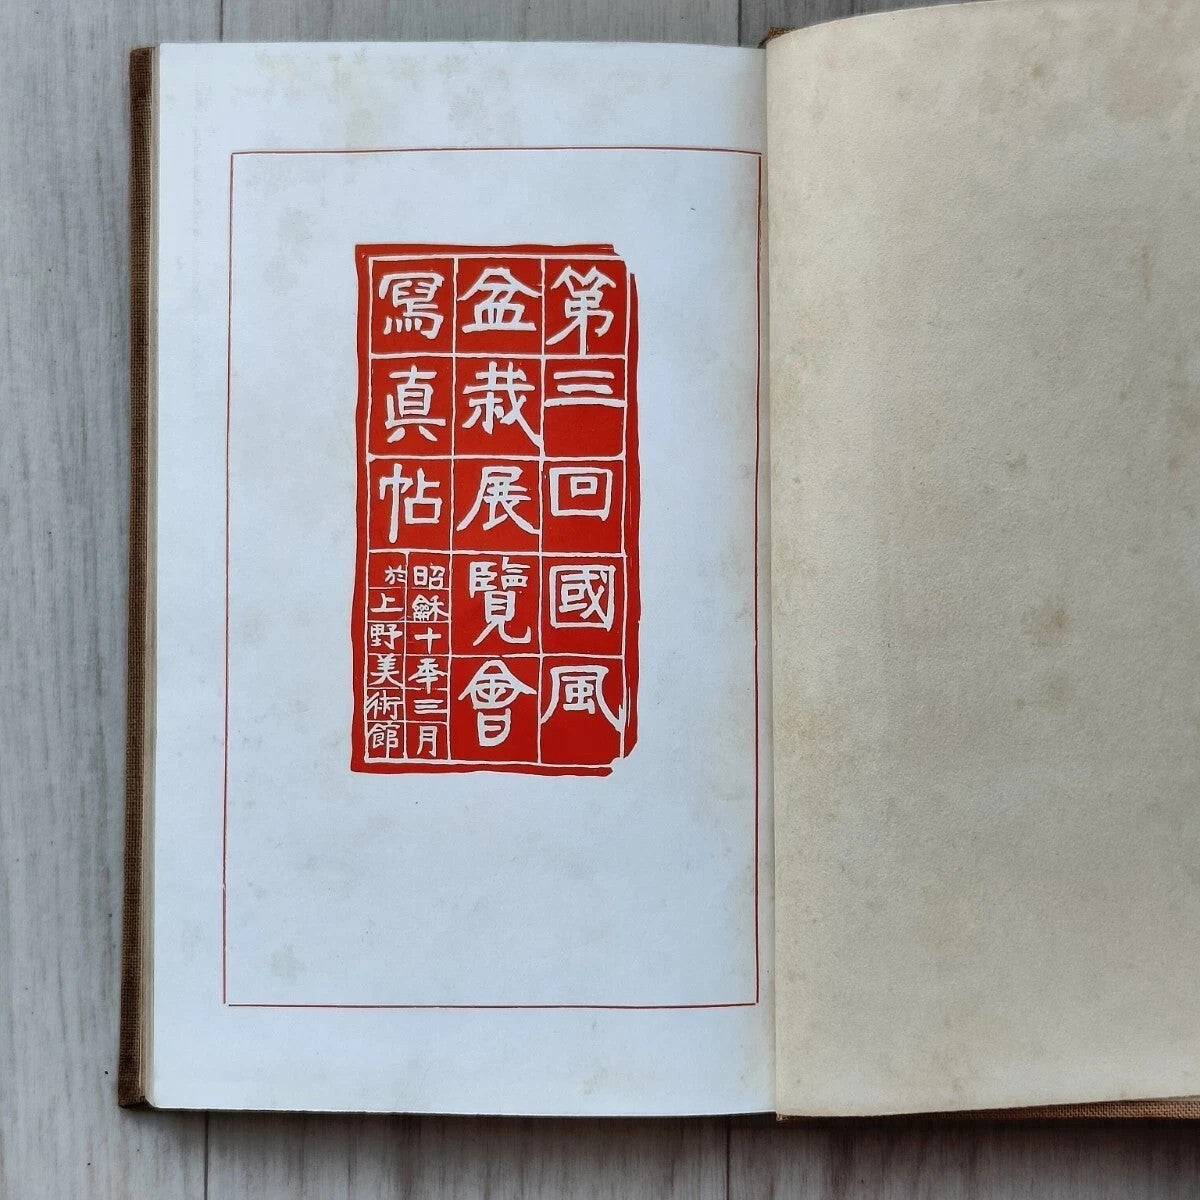 第三回國風
盆栽展覽會
寫真帖
昭龢十年三月
於上野美術館